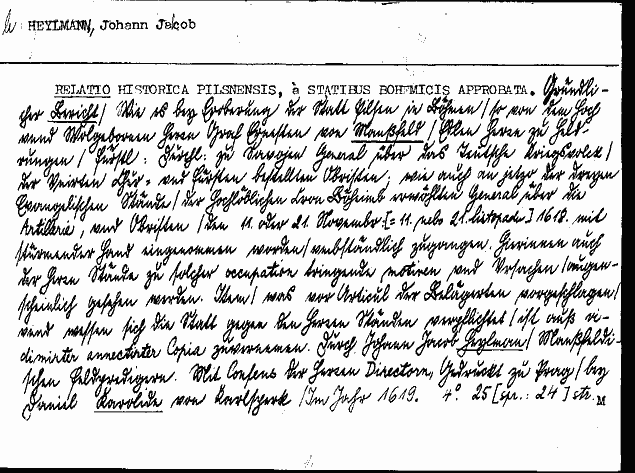 HEYLMANN, Johann Jakob
RELATIO HISTORICA PILSNENSIS, à STATIBUS BOHEMICIS APPROBATA. Gründli-
cher Bericht/ Wie es bey Eroberung der Statt Pilsen in Böhmen/ so von dem Hoch
vnnd Wolgebornen Herrn Graf Ernesten von Manßfeld/ Edlen Herrn zu Held-
rungen/ Fürstl: Durchl: zu Savojen General über das Teutsche Kriegsvolck/
der Vnirten Chur- vnd Fürsten bestellten Obristen: wie auch an jetzo der dreyen
Evangelischen Stände/ der Hochlöblichen Cron Böheimb erwöhlten General über die
Artilleria, vnnd Obristen/ den 11. oder 21. Novembr. [= 11. nebo 21. listopadu] 1618. mit
stürmender Hand eingenommen worden/ verständlich zugangen. Hierinnen auch
der Herrn Stände zu solcher occupation bringende motiven vnd Vrsachen/ augen-
scheinlich gesehen werden. Item/ was vor Articul der Belägerten vorgeschlagen/
vnnd wessen sich die Statt gegen den Herren Ständen verpflichtet/ ist auß vi-
dimirter annectirter Copia zuvernemen. Durch Johann Jacob Heylman/ Manßfeldi-
schen Feldpredigern. Mit Consens der Herren Directorn, Gedruckt zu Prag/ bey
Daniel Karolide von Karlsperk/ Im Jahr 1619. 4°. 25 [spr.: 24] str. M